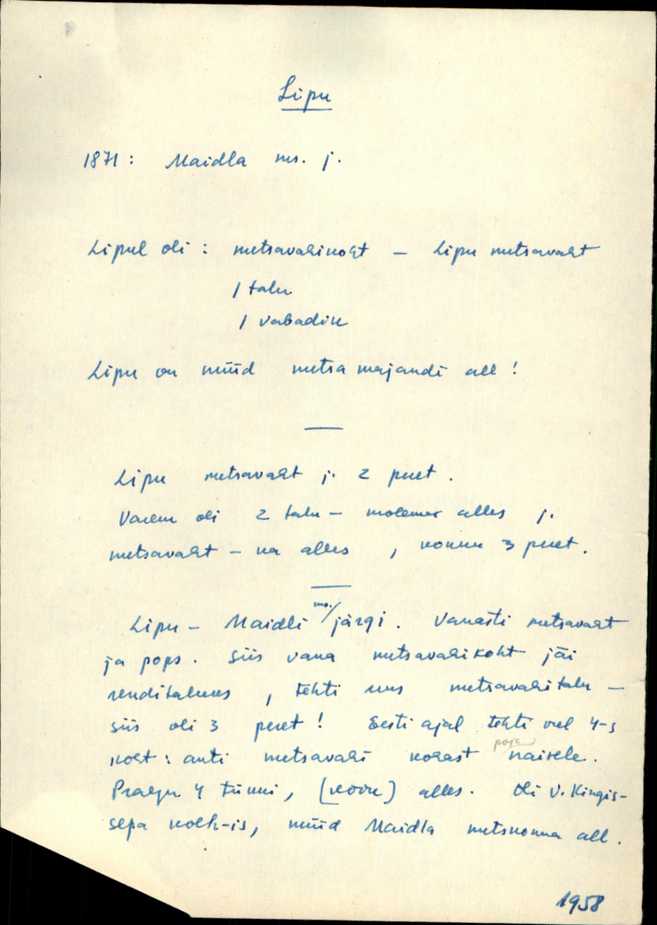 Lipu
1871: Maidla ms. j.
Lipul oli: metsavahikoht – Lipu metsavaht
1 talu
1 vabadik
Lipu on nüüd metsamajandi all!
Lipu metsavaht j. 2 peret.
Varem oli 2 talu – molemer alles j.
metsavaht – ka alles, kokku 3 peret.
Lipu – Maidli ms. järgi. Vanasti metsavaht
ja pops. Siis vana metsavahikoht jäi
renditaluks, tehti uus metsavahitalu –
siis oli 3 peret! Eesti ajal tehti veel 4-s
koht: anti metsavahi kohast pops naisele.
Praegu 4 tünni, (koore) alles. Oli V. Kingis-
sepa kolh-is, nüüd Maidla metskonna all.
1958